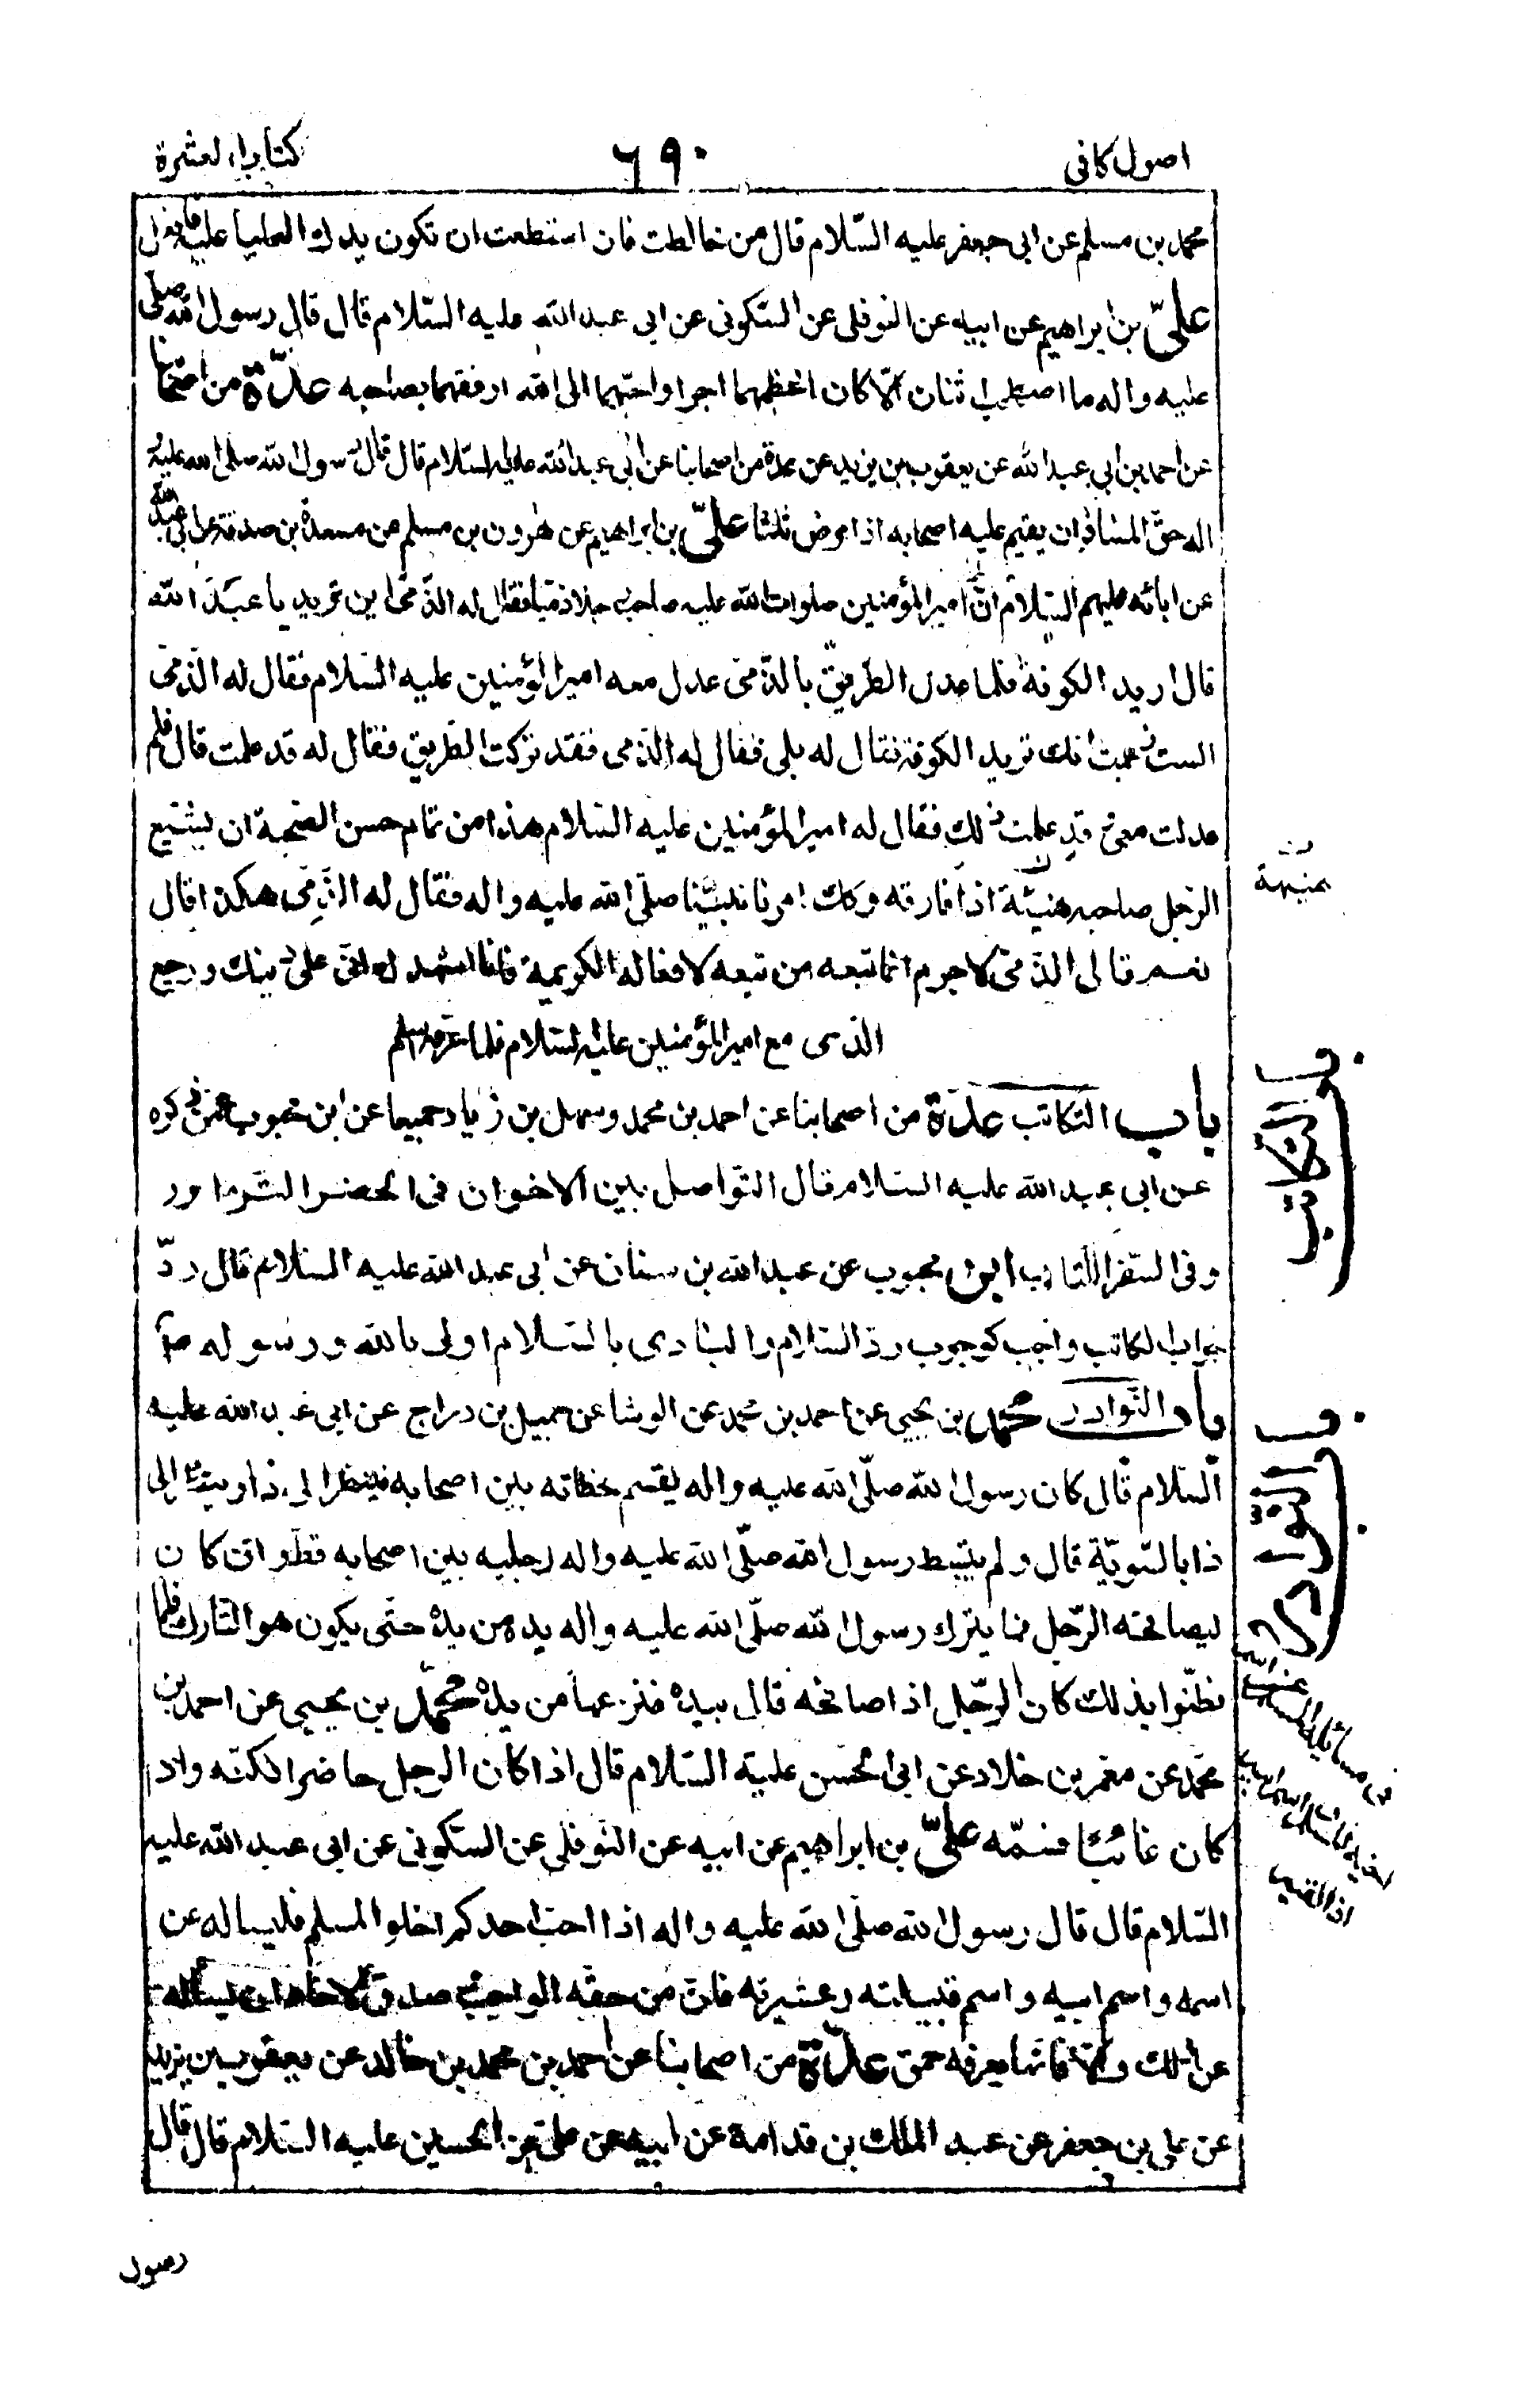 اصول كافى
٦٩٠
كتاب العشرة
محمد بن مسلم عن ابى جعفر عليه السّلام قال من خالطت فان استطعت ان تكون يدك العليا عليه فافعل
علىّ بن ابراهيم عن ابيه عن النوفلى عن السّكونى عن ابى عبد الله عليه السّلام قال قال رسول الله صلى
عليه واله ما اصطحب اثنان الّا كان اعظمهما اجرا واحبّهما الى الله ارفقهما بصاحبه عدّة من اصحابنا
عن احمد بن ابى عبد الله عن يعقوب بن يزيد عن عدة من اصحابنا عن ابى عبد الله عليه السّلام قال قال رسول الله صلى الله عليه و
اله حقّ المسافر ان يقيم عليه اصحابه اذا مرض ثلثا علىّ بن ابراهيم عن هرون بن مسلم عن مسعدة بن صدقة عن ابى عبد الله
عن ابائه عليهم السّلام انّ امير المؤمنين صلوات الله عليه صاحب رجلا ذميّا فقال له الذّمّى اين تريد يا عبد الله
قال اريد الكوفة فلما عدل الطّريق بالذّمّى عدل معه امير المؤمنين عليه السّلام فقال له الذّمّى
الست زعمت انك تريد الكوفة فقال له بلى فقال له الذّمى فقد تركت الطّريق فقال له قد علمت قال فلم
عدلت معى وقد علمت ذلك فقال له امير المؤمنين عليه السّلام هذا من تمام حسن الصّحبة ان يشيّع
الرّجل صاحبه هنيئة اذا فارقه وكذلك امرنا نبيّنا صلّى الله عليه واله فقال له الذّمّى هكذا قال
نعم قال الذّمّى لا جرم انّما تبعه من تبعه لافعاله الكريمة فانا اشهد لك انّى على دينك ورجع
الذمى مع امير المؤمنين عليه السّلام فلما عرفه اسلم
باب التّكاتب عدّة من اصحابنا عن احمد بن محمد وسهل بن زياد جميعا عن ابن محبوب عمّن ذكره
عن ابى عبد الله عليه السّلام قال التّواصل بين الاخوان فى الحضر التّزاور
وفى السّفر التّكاتب ابن محبوب عن عبد الله بن سنان عن ابى عبد الله عليه السّلام قال ردّ
جواب الكتاب واجب كوجوب ردّ السّلام والبادى بالسّلام اولى بالله ورسوله
باب النّوادر محمّد بن يحيى عن احمد بن محمد عن الوشا عن جميل بن دراج عن ابى عبد الله عليه
السّلام قال كان رسول الله صلّى الله عليه واله يقسم لحظاته بين اصحابه فينظر الى ذا وينظر الى
ذا بالسّويّة قال ولم يبسط رسول الله صلّى الله عليه واله رجليه بين اصحابه قطّ وان كان
ليصافحه الرّجل فما يترك رسول الله صلّى الله عليه واله يده من يده حتّى يكون هو التّارك فلما
فطنوا بذلك كان الرّجل اذا صافحه قال بيده فنزعها من يده محمّد بن يحيى عن احمد بن
محمّد عن معمر بن خلاد عن ابى الحسن عليه السّلام قال اذا كان الرجل حاضرا فكنّه واذا
كان غائبا فسمّه علىّ بن ابراهيم عن ابيه عن النّوفلى عن السّكونى عن ابى عبد الله عليه
السّلام قال قال رسول الله صلّى الله عليه واله اذا احبّ احدكم اخاه المسلم فليساله عن
اسمه واسم ابيه واسم قبيلته وعشيرته فانّ من حقّه الواجب وصدق الاخاء ان يسأله
عن ذلك والّا فانّها معرفة حمق عدّة من اصحابنا عن احمد بن محمد بن خالد عن يعقوب بن يزيد
عن على بن جعفر عن عبد الملك بن قدامة عن ابيه عن على بن الحسين عليه السّلام قال قال
باب التّكاتب
باب النّوادر
رسول